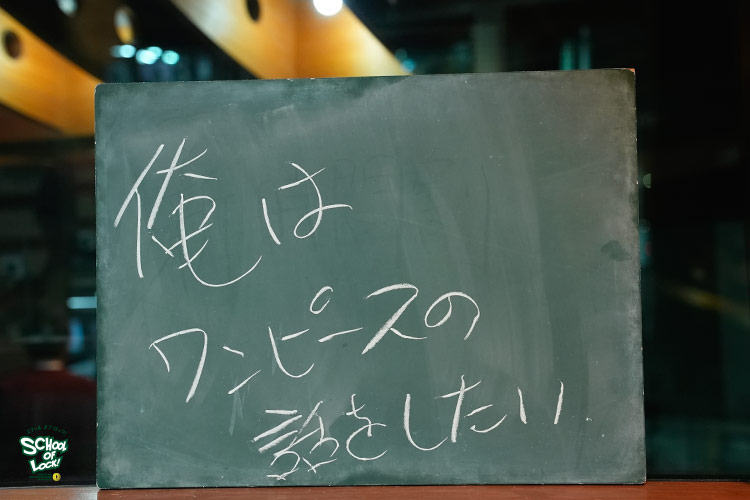 俺は
ワンピースの
話をしたい
SCHOOL
OF
LOCK!